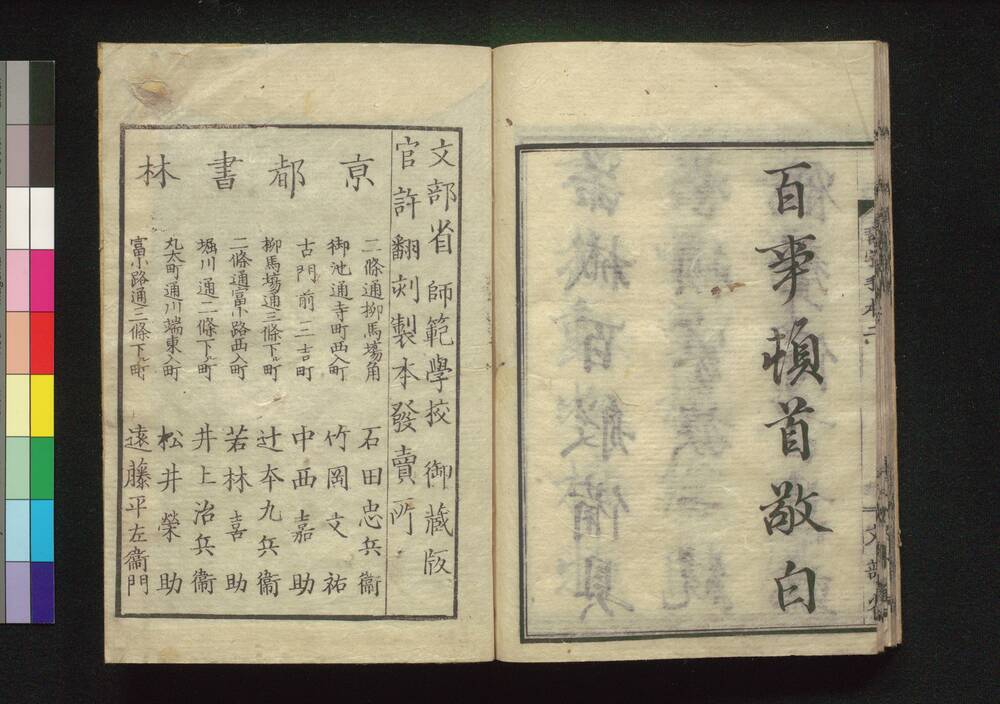 百事頓首敬白
習字手本二
文部省 師範學校 御蔵版
官許翻刻製本發賣所
京都書林
二條通柳馬塲角 石田忠兵衞
御池通寺町西入町 竹岡文祐
古門前三吉町 中西嘉助
柳馬塲通三條下ル町 辻本九兵衞
二條通富小路西入町 若林喜助
堀川通二條下ル町 井上治兵衞
丸太町通川端東入町 松井榮助
富小路通三條下ル町 遠藤平左衞門